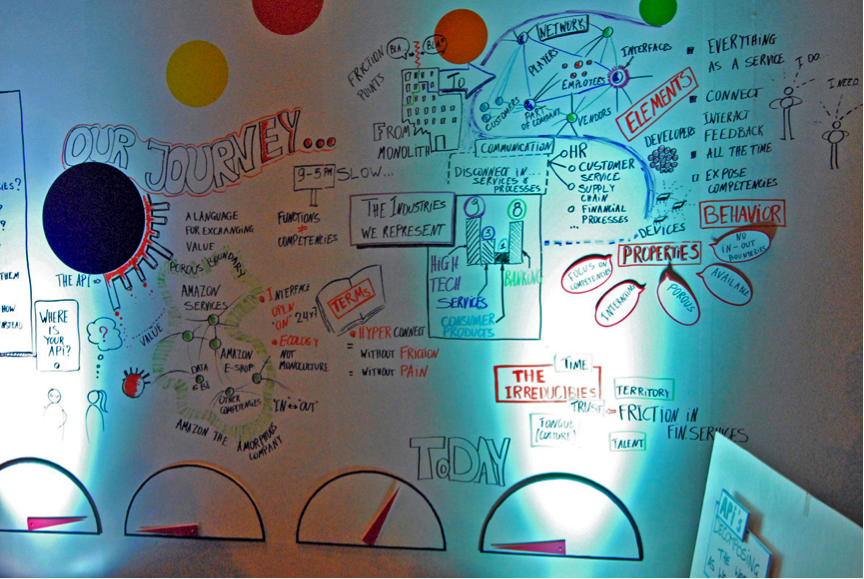 OUR JOURNEY...
THE API
A LANGUAGE
FOR EXCHANGING
VALUE
9-5PM
SLOW...
FUNCTIONS
≠
COMPETENCIES
FRICTION
POINTS
BLA
BLA
FROM
MONOLITH
TO
NETWORK
PLAYERS
EMPLOYERS
INTERFACES
CUSTOMERS
PART
OF COMPANY
VENDORS
ELEMENTS
DEVELOPERS
DEVICES
EVERYTHING
AS A SERVICE
CONNECT
INTERACT
FEEDBACK
ALL THE TIME
EXPOSE
COMPETENCIES
I DO
I NEED
BEHAVIOR
COMMUNICATION
DISCONNECT IN...
SERVICES &
PROCESSES
HR
CUSTOMER
SERVICE
SUPPLY
CHAIN
FINANCIAL
PROCESSES
...
THE INDUSTRIES
WE REPRESENT
9
3
1
8
HIGH
TECH
SERVICES
BANKING
CONSUMER
PRODUCTS
PROPERTIES
FOCUS ON
COMPETENCIES
POROUS
AVAILABLE
NO
IN-OUT
BOUNDARIES
THEM
HOW
INSTEAD
WHERE
IS
YOUR
API?
?
VALUE
POROUS BOUNDARY
AMAZON
SERVICES
AMAZON
E-SHOP
DATA
OTHER
COMPETENCIES
"IN"↔"OUT"
AMAZON THE AMORPHOUS
COMPANY
INTERFACE
OPEN
"ON" 24x7
ECOLOGY
NOT
MONOCULTURE
TERMS
HYPER CONNECT
= WITHOUT FRICTION
= WITHOUT PAIN
THE
IRREDUCIBLES
TIME
TERRITORY
TRUST
FRICTION IN
FIN. SERVICES
TONGUE
(CULTURE)
TALENT
TODAY
API'S
DECOMPOSING
THE